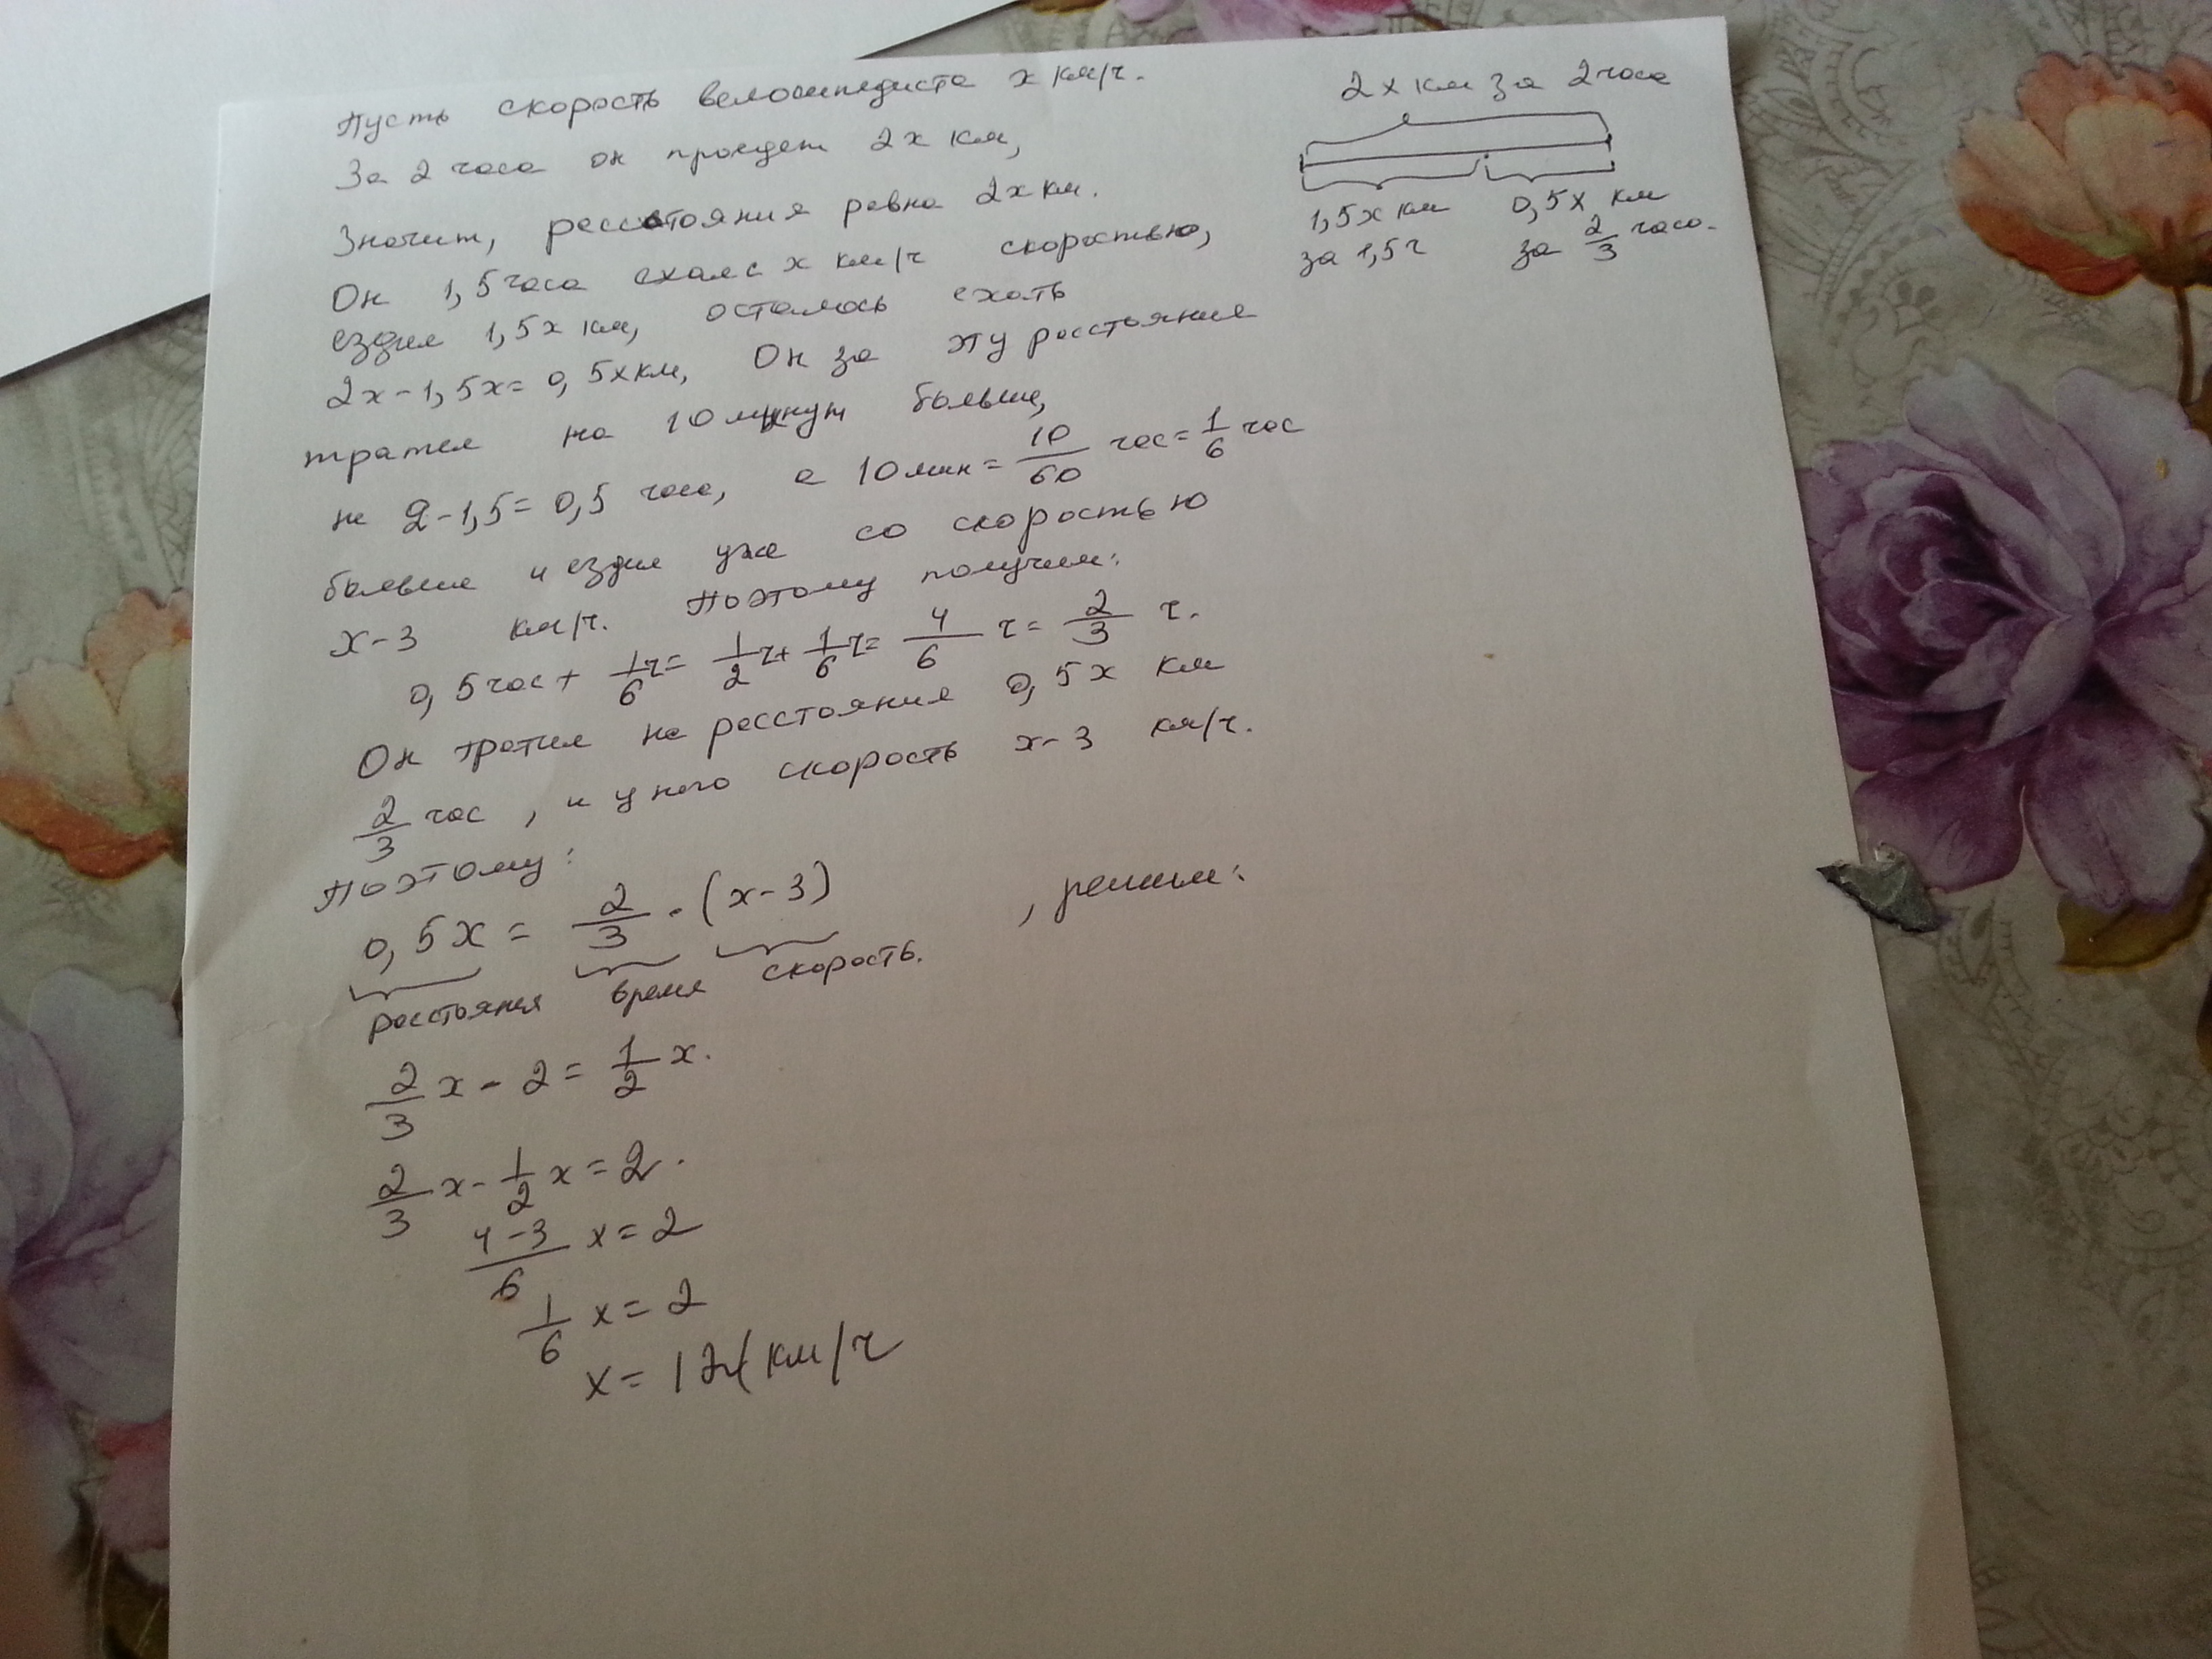 Пусть скорость велосипедиста x км/ч.
За 2 часа он проедет 2x км,
Значит, расстояния равна 2x км.
Он 1,5 часа ехал с x км/ч скоростью,
ездил 1,5x км, осталось ехать
2x-1,5x=0,5x км, Он за эту расстояние
тратил на 10 минут больше,
не 2-1,5=0,5 часа, а 10 мин = 10/60 час = 1/6 час
больше и ездил уже со скоростью
x-3 км/ч. Поэтому получим:
0,5 час + 1/6 ч = 1/2 ч + 1/6 ч = 4/6 ч = 2/3 ч.
Он тратил на расстояния 0,5x км
2/3 час, и у него скорость x-3 км/ч.
Поэтому:
0,5x = 2/3 · (x-3) , решим:
расстояния время скорость.
2/3 x - 2 = 1/2 x.
2/3 x - 1/2 x = 2.
4-3/6 x = 2
1/6 x = 2
x = 12 (км/ч
2x км за 2 часа
1,5x км 0,5x км
за 1,5ч за 2/3 часа.